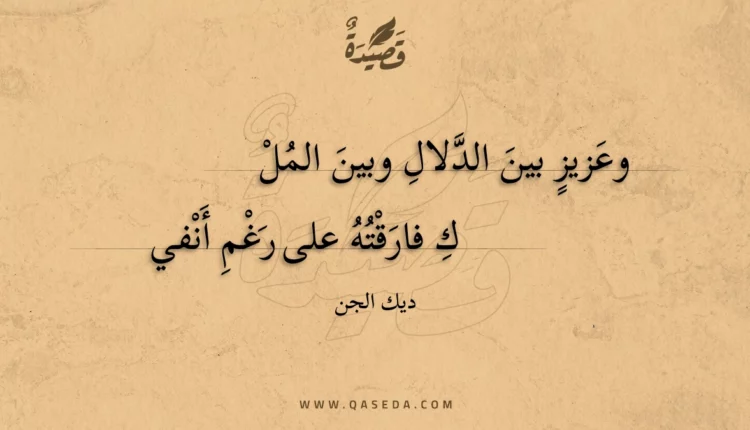 قَصِيدَةٌ
وعَزيزٍ بينَ الدَّلالِ وبينَ المُلْ
كِ فارَقْتُهُ على رَغْمِ أَنْفي
ديك الجن
WWW.QASEDA.COM